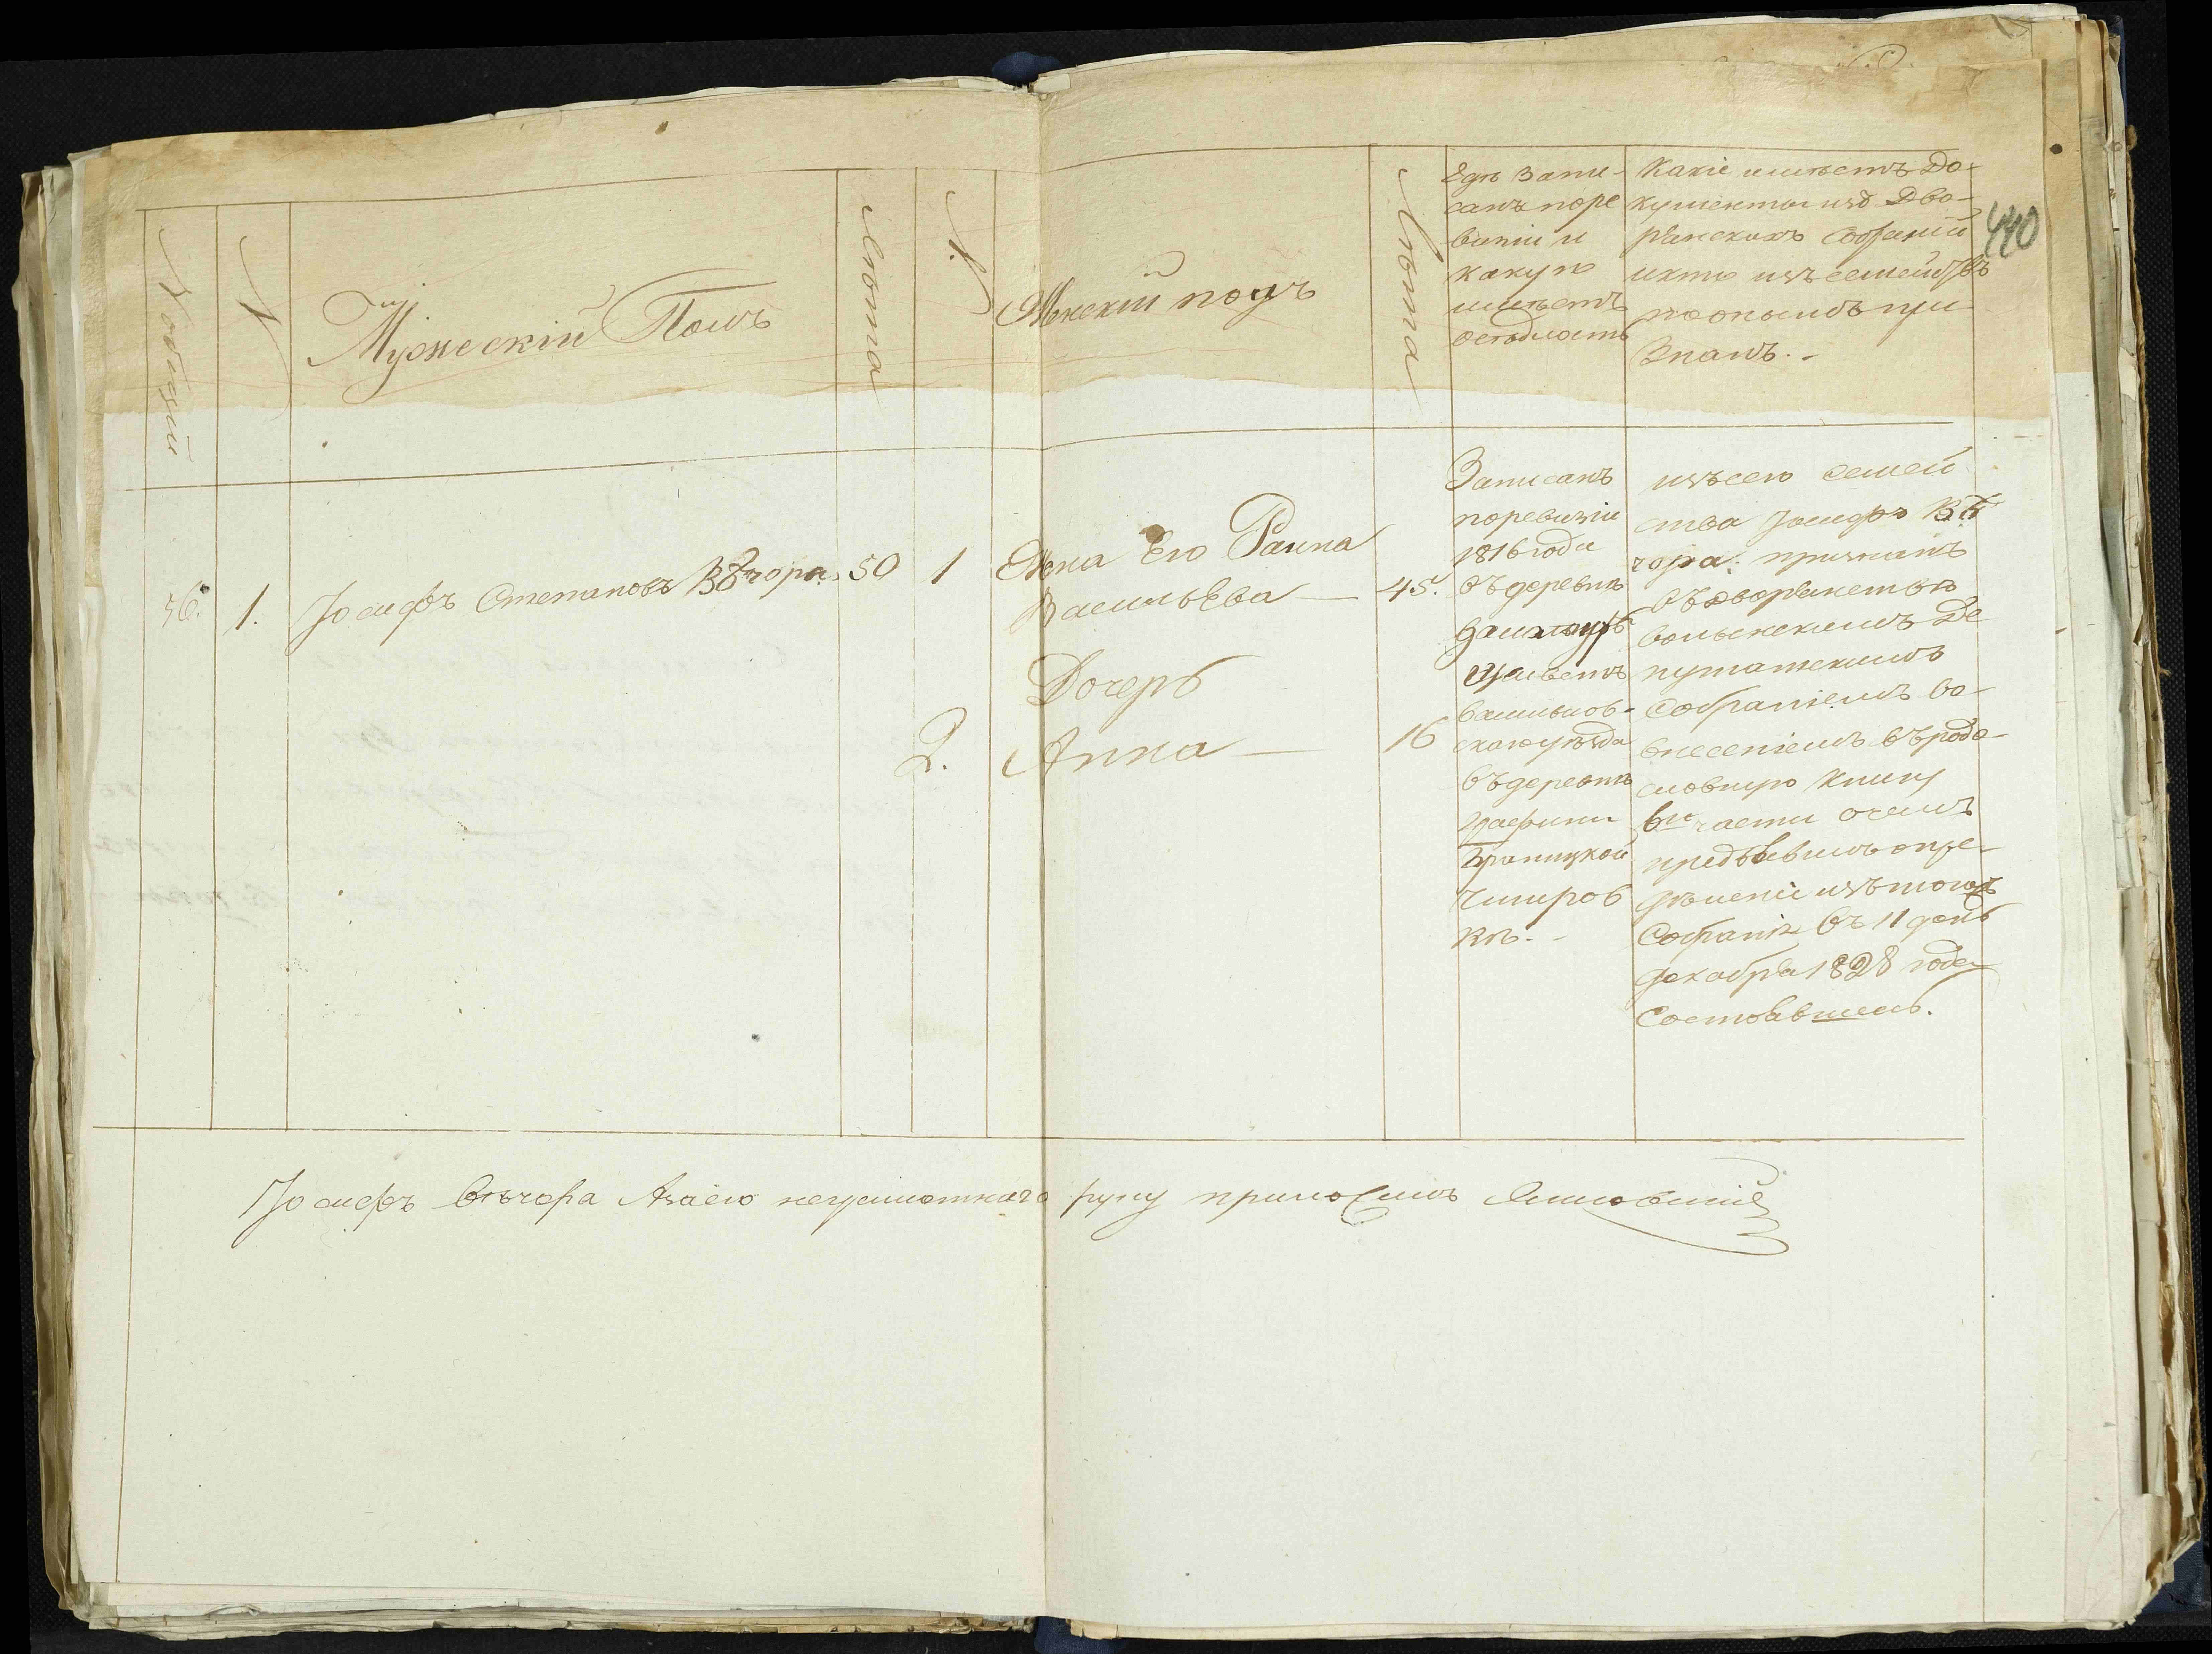 № общій
№
Мужескій Полъ
Лѣта
№
Женскій полъ
Лѣта
Гдѣ запи-
санъ поре
визіи и
какую
имѣетъ
осѣдлость
Какіе имѣетъ до-
кументы изъ Дво-
рянскихъ Собраній
и кто изъ семействъ
по онымъ при
знанъ.-
440
56.
1.
Іосифъ Степановъ Вѣчора
50
1
Жена Его Раина
Васильева —
45.
Дочерь
2.
Анна —
16
Записанъ
поревизіи
1816 года
въ деревнѣ
живетъ
васильков-
скаго уѣзда
въ деревнѣ
графини
Браницкой
Чмиров
кѣ.-
изъ сего семей
ства Іосифъ Вѣ
чора признанъ
въ дворянствѣ
волынскимъ Де
путатскимъ
Собраніемъ со
внесеніемъ въ родо-
словную книгу
6ю части о чемъ
предъявилъ опре-
дѣленіе изъ того жъ
Собранія въ 11 день
декабря 1828 года
Состоявшемъ.
Іосифъ Вѣчора А за его неграмотнаго руку приложилъ